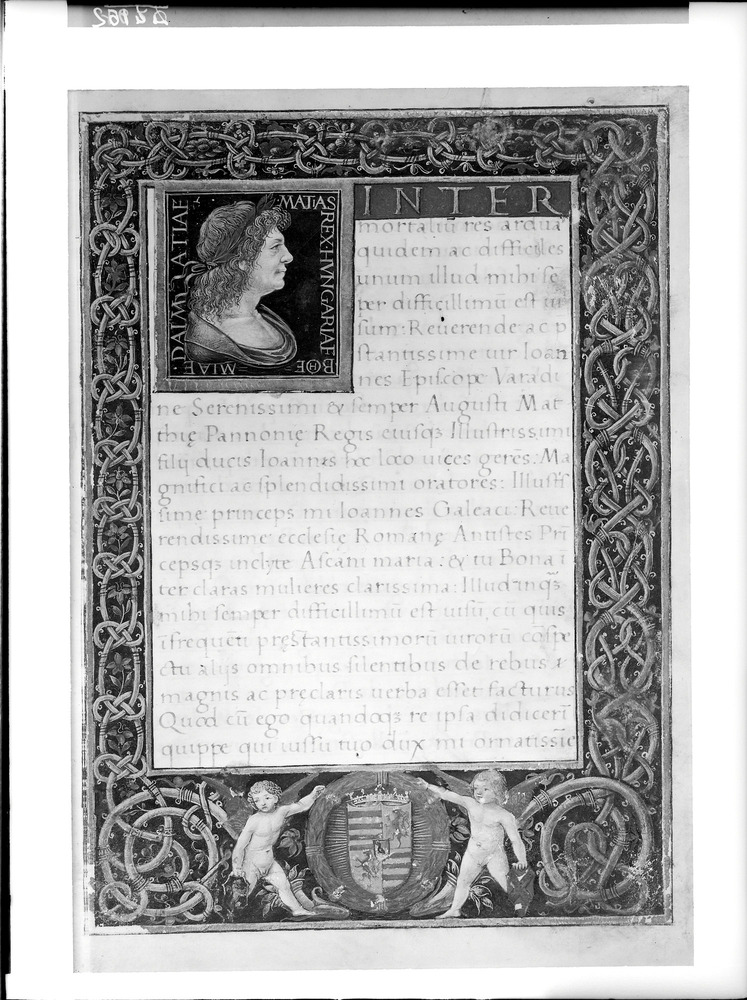 MATIAS REX·HVNGARIAE BOHE=MIAE·DALMATIAE
INTER
mortaliũ res ardua
quidem ac difficiles
unum illud mihi se
per difficillimũ est ui
sum: Reuerende ac p
stantissime uir Ioan
nes Episcope Varadi
ne Serenissimi & semper Augusti Mat
thię Pannonię Regis eiusqꝫ Illustrissimi
filij ducis Ioannis hoc loco uices gerẽs: Ma
gnifici ac splendidissimi oratores: Illust
sime princeps mi Ioannes Galeaci: Reue
rendissime ecclesię Romanę Antistes Pri
cepsqꝫ inclyte Ascani maria: & tu Bona ĩ
ter claras mulieres clarissima: Illud inqꝫ
mihi semper difficillimũ est uisũ, cũ quis
ĩ frequẽti pręstantissimorũ uirorũ cõspe
ctu alijs omnibus silentibus de rebus
magnis ac preclaris uerba esset facturus
Quod cũ ego quandoqꝫ re ipsa didicerĩ
quippe qui iussu tuo dux mi ornatissie